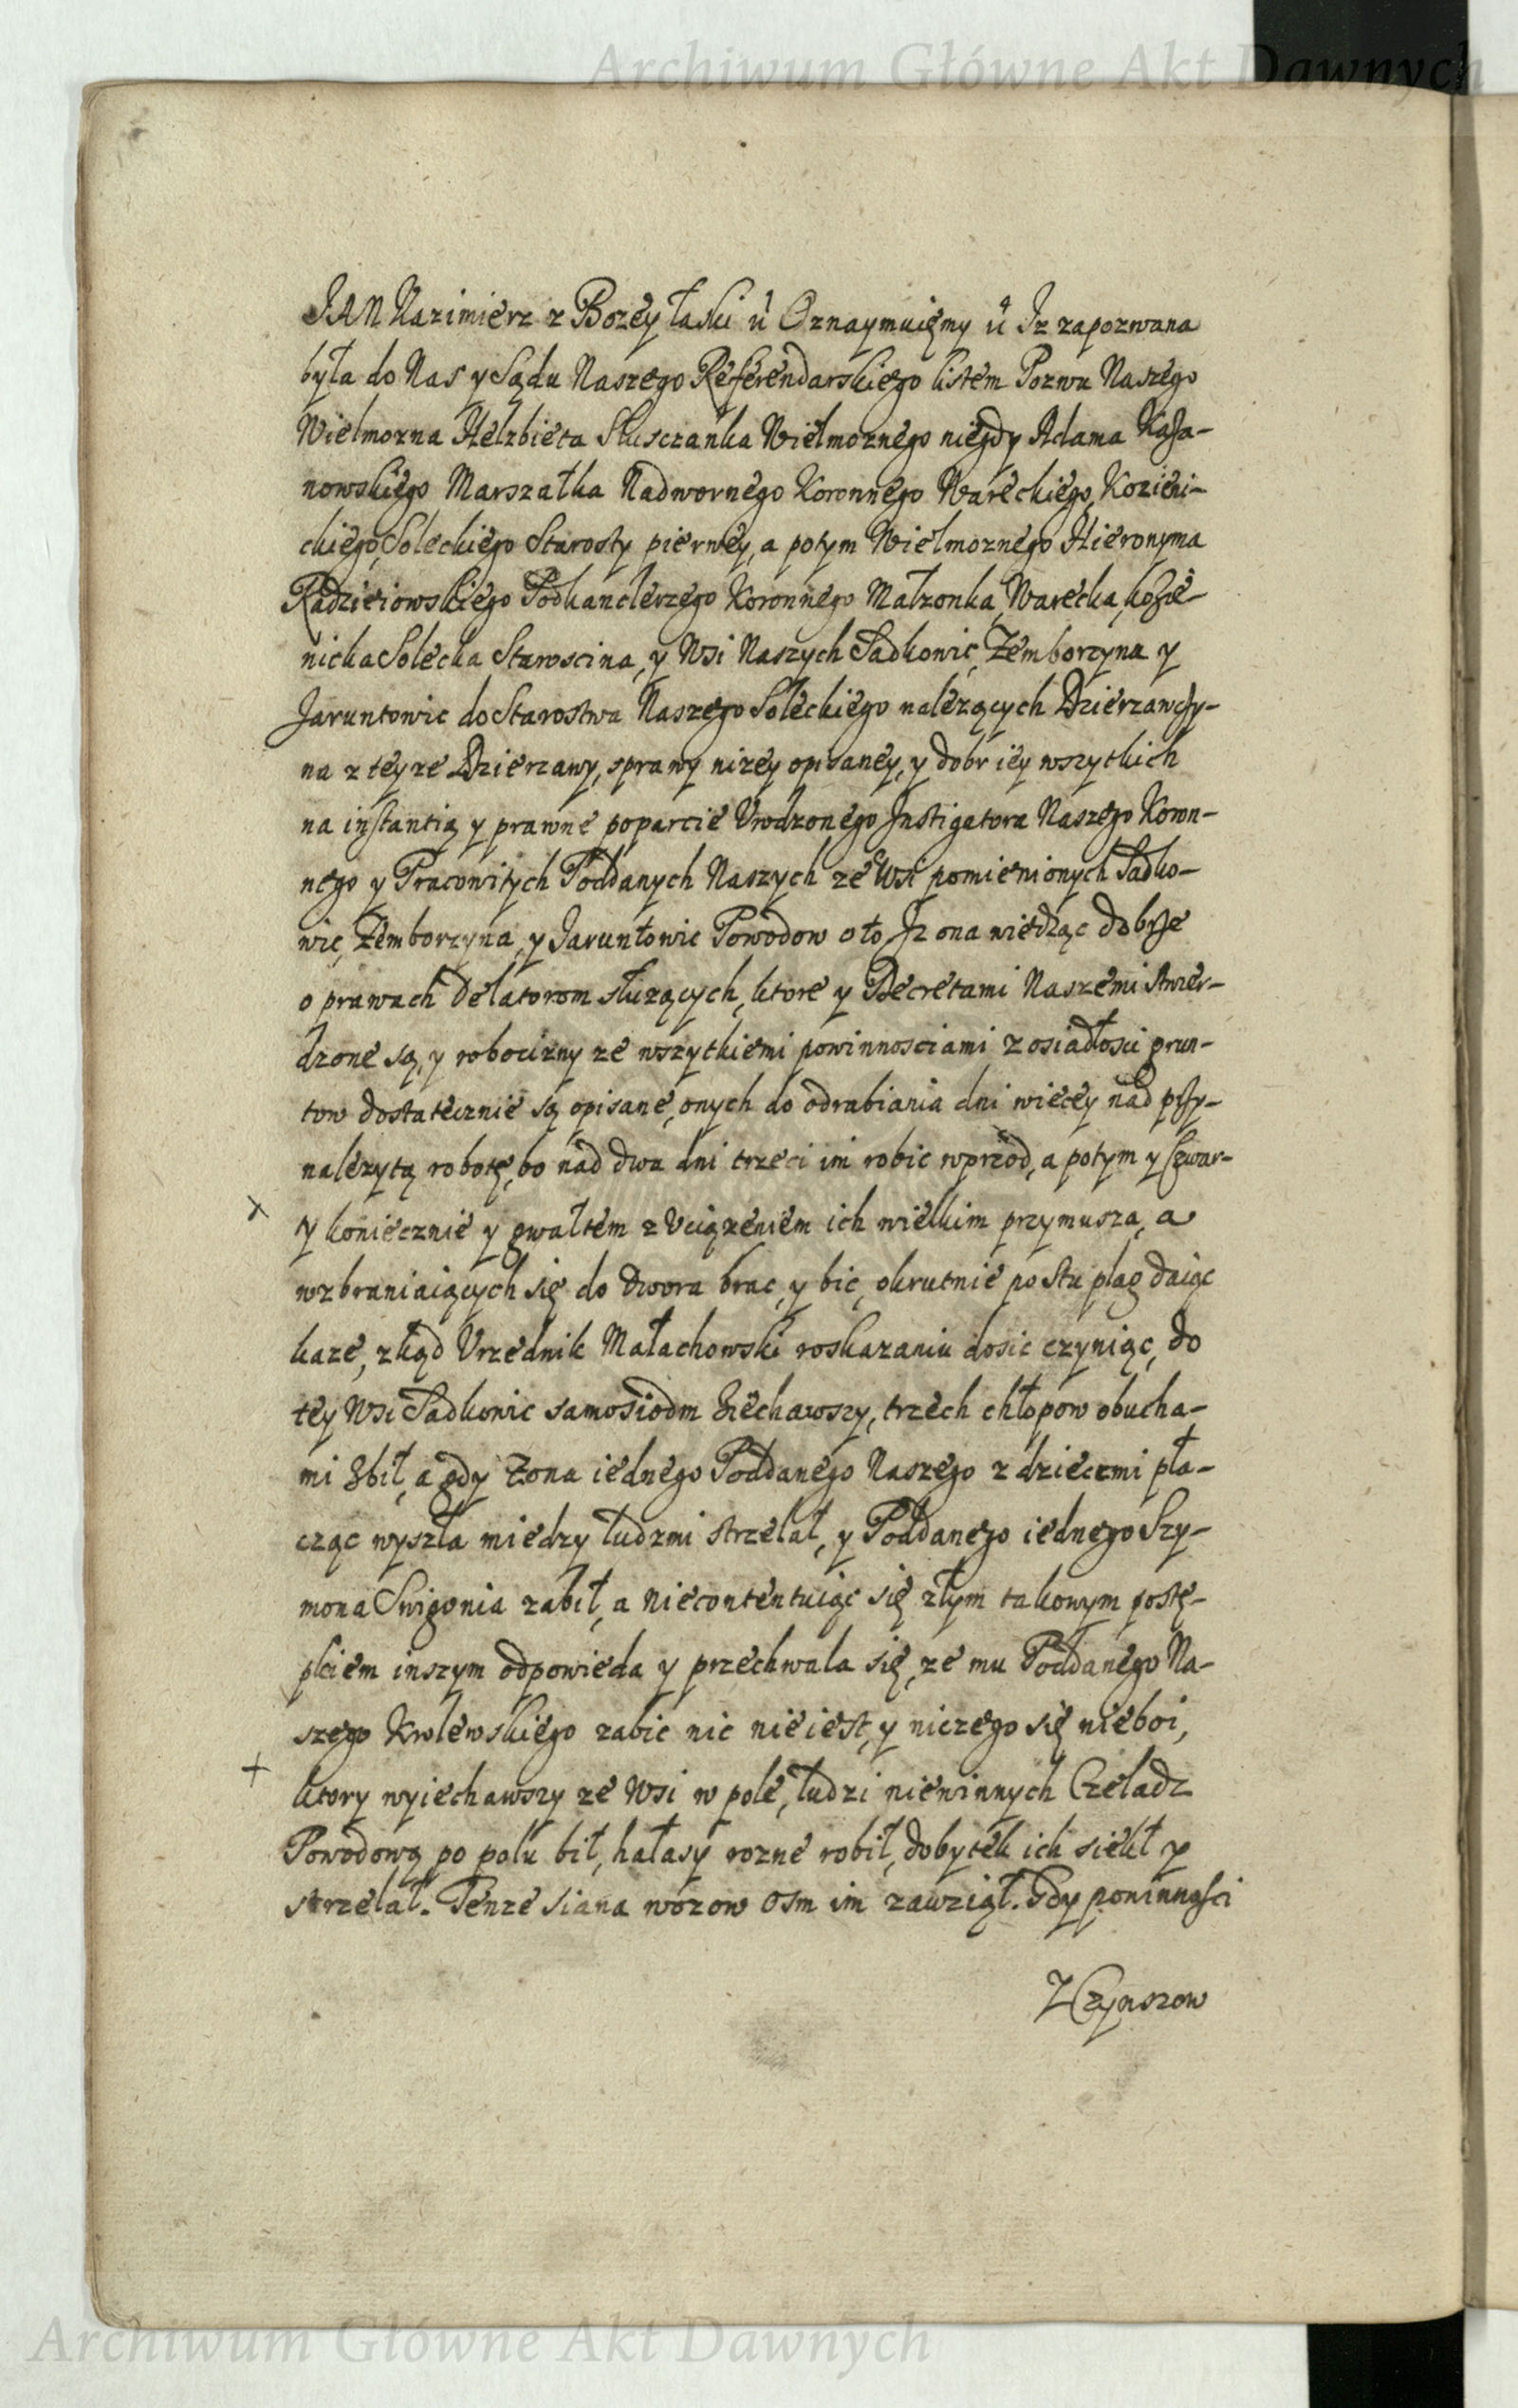 Archiwum Główne Akt Dawnych
JAN Kazimierz z Bozey łaski ü Oznaymuięmy ü Iz zapozwana
była do Nas y Sądu Naszego Referendarskiego listem Pozwu Naszego
Wielmozna Helzbieta Słusczanka Wielmoznego niegdy Adama Kaza-
nowskiego Marszałka Nadwornego Koronnego Wareckiego, Kozieni-
ckiego, Soleckiego Starosty pierwey, a potym Wielmoznego Hieronyma
Radzieiowskiego Podkanclerzego Koronnego Małzonka, Warecka, kozie-
nicka Solecka Starościna, y Wsi Naszych Sadkowic, Zemborzyna y
Jaruntowic do Starostwa Naszego Soleckiego nalezących Dzierzawczy-
na z teyze Dzierzawy, sprawy nizey opisaney, y dobr iey wszytkich
na instantią y prawne poparcie Urodzonego Instigatora Naszego Koron-
nego y Pracowitych Poddanych Naszych ze Wsi pomienionych Sadko-
wic, Zemborzyna, y Jaruntowic Powodow oto Iz ona wiedząc dobrze
o prawach Delatorom słuzących, ktore y Decretami Naszemi stwier-
dzone są, y robocizny ze wszytkiemi powinnosciami z osiadłosci grun-
tow dostatecznie są opisane, onych do odrabiania dni wiecey nad przy-
nalezytą robotę, bo nad dwa dni trzeci im robic wprzod, a potym y czwar-
ty koniecznie y gwałtem z Uciązeniem ich wielkim przymusza, a
wzbraniaiących się do dwora brac, y bic, okrutnie po stu plag daiąc
kaze, zkąd Urzednik Małachowski roskazaniu dosic czyniąc, do
tey Wsi Sadkowic samosiodm ziechawszy, trzech chłopow obucha-
mi zbił, a gdy Zona iednego Poddanego Naszego z dziecmi pła-
cząc wyszła miedzy ludzmi strzelał, y Poddanego iednego Szy-
mona Swigonia zabił, a niecontentuiąc się złym takowym postę-
pkiem inszym odpowieda y przechwala się, ze mu Poddanego Na-
szego Krolewskiego zabic nic nieiest, y niczego się nieboi,
ktory wyiechawszy ze Wsi w pole, ludzi niewinnych Czeladz
Powodową po polu bił, hałasy rozne robił, dobytek ich siekł y
strzelał. Tenze siana wozow osm im zawziął. Gdy powinności
Z Czynszow
Archiwum Główne Akt Dawnych